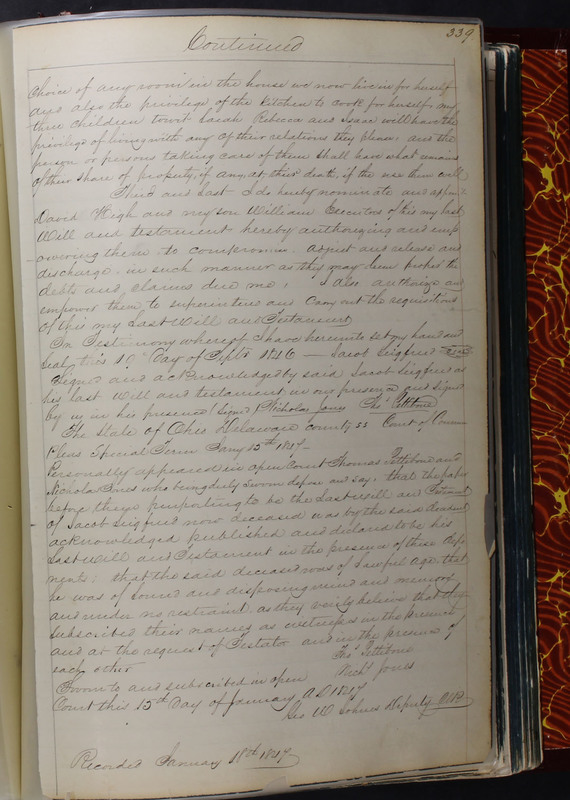 339
Continued
Choice of any room in the house we now live in for herself
and also the privilege of the Kitchen to cook for herself my
three children towit Sarah Rebecca and Isaac will have the
privilege of living with any of their relations they please, and the
person or persons taking care of them shall have what remains
of their share of property, if any, at their death, if the use them well,
Third and Last I do hereby nominate and appoint
David High and my son William Executors of this my last
Will and testament hereby authorizing and emp
owering them to compromise adjust and release and
discharge in such manner as they may deem proper the
debts and claims due me, I also authorize and
empower them to superintend and carry out the requisitions
of this my Last Will and Testament
In Testimony whereof I have hereunto set my hand and
Seal this 10th Day of Septr 1846 — Jacob Seigfried Seal
Signed and acknowledged by said Jacob Seigfried as
his last will and testament in our presence and signed
by us in his presence (Signed) Nicholas Jones Thos Pettibone
The State of Ohio Delaware County SS Court of Common
Pleas Special Term Jany 15th 1847—
Personally appeared in open Court Thomas Pettibone and
Nicholas Jones who being duly sworn depose and say, that the paper
before them purporting to be the Last will and Testament
of Jacob Seigfried now deceased was by the said decedent
acknowledged published and declared to be his
Last will and Testament in the presence of these depo
nents: that the said deceased was of Lawful age, that
he was of sound and disposing mind and memory
and under no restraint, as they verily believe that they
Subscribed their names as witnesses in the presence
and at the request of Testator and in the presence of
each other
Thos Pettibone
Nichs Jones
Sworn to and subscribed in open
Court this 15th Day of January AD 1847
Geo W Sohues Deputy Clk
Recorded January 18th 1847